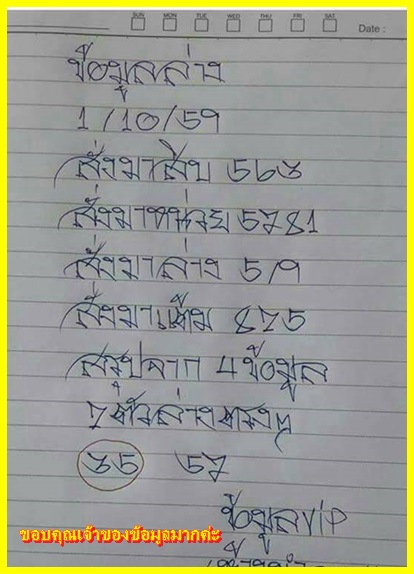 SUN MON TUE WED THU FRI SAT
Date :
ข้อมูลล่าง
1/10/59
ส่งมาสิบ 563
ส่งมาหน่วย 5781
ส่งมาล่าง 5/9
ส่งมาแต้ม 875
สรุปจาก 4 ข้อมูล
2 ตัวล่างตรงๆ
35 57
ข้อมูล VIP
ขอบคุณเจ้าของข้อมูลมากค่ะ